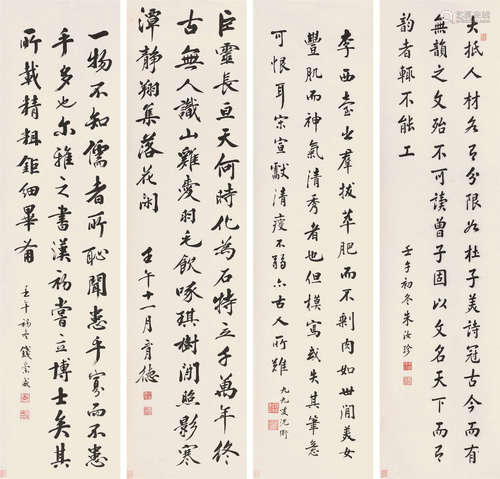 大抵人材各有分限如杜子美詩冠古今而有
無韻之文殆不可讀曾子固以文名天下而有
韵者輒不能工
壬午初冬朱汝珍
李西臺出羣拔萃肥而不剩肉如世間美女
豐肌而神氣清秀者也但模寫或失其筆意
可恨耳宋宣獻清瘦不弱亦古人所難
九九叟沈衛
巨靈長亘天何時化為石特立千萬年終
古無人識山雞愛羽毛飲啄琪樹間照影寒
潭靜翔集落花閑
壬午十一月育德
一物不知儒者所恥聞患乎寡而不患
乎多也尔雅之書漢初嘗立博士矣其
所載精粗鉅細畢備
壬午初冬錢崇威